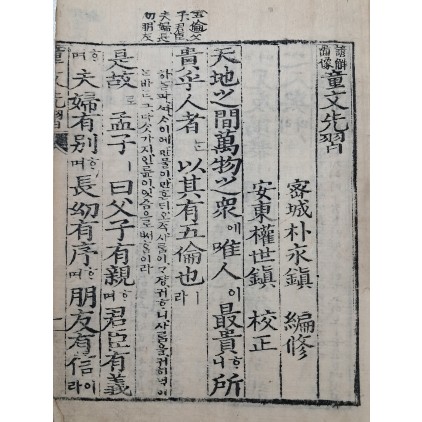 五倫父
子君臣
夫婦長
幼朋友
諺解
圖像
童文先習
密城朴永鎭 編修
安東權世鎭 校正
天地之間萬物之衆에唯人이最貴ᄒᆞ니所
貴乎人者는以其有五倫也ㅣ라
是故로孟子ㅣ曰父子有親ᄒᆞ며君臣有義
ᄒᆞ며夫婦有別ᄒᆞ며長幼有序ᄒᆞ며朋友有信이라
童文先習